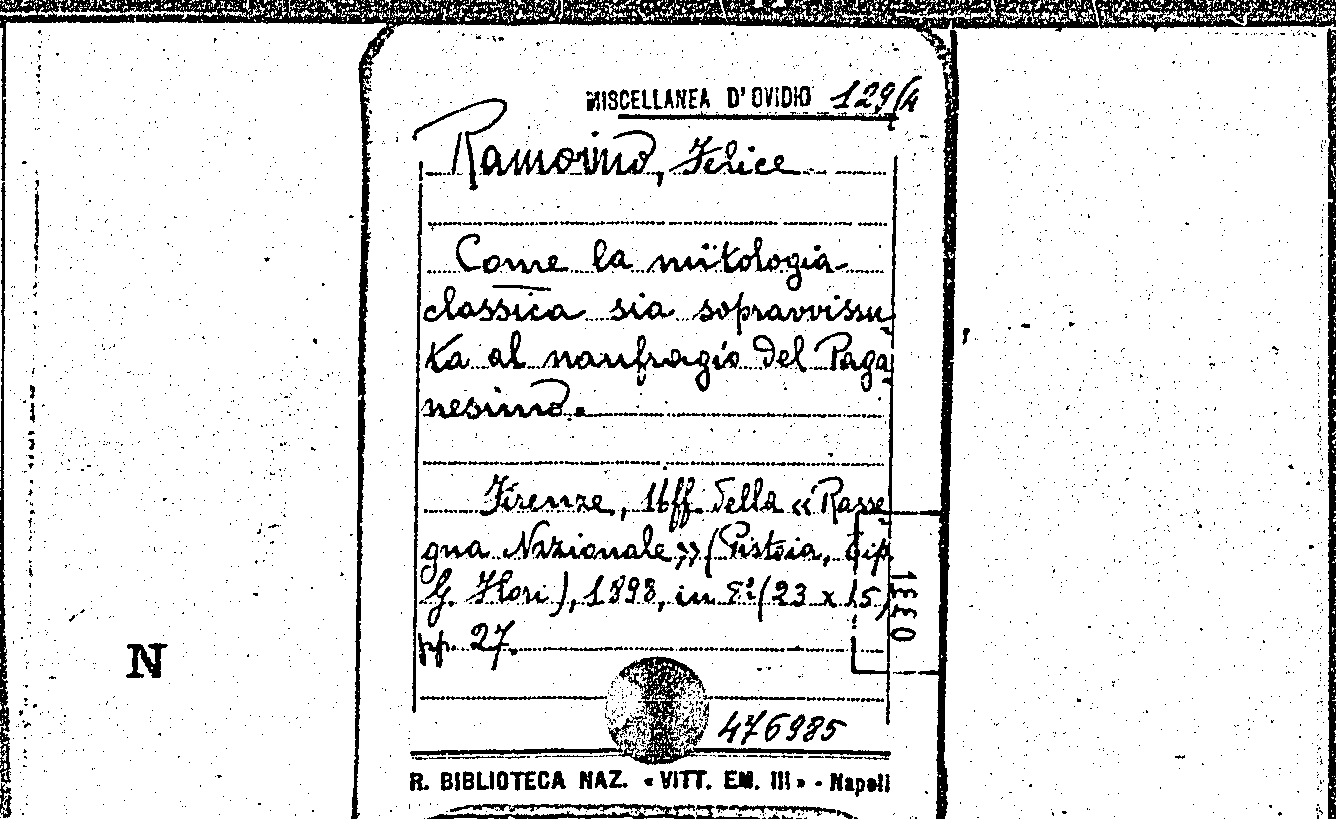 MISCELLANEA D'OVIDIO 129/4
Ramorino, Felice
Come la mitologia
classica sia sopravvissu-
ta al naufragio del Paga-
nesimo.
Firenze, Uff. della «Rasse-
gna Nazionale» (Pistoia, Tip.
G. Flori), 1898, in 8° (23 x 15)
pp. 27.
1330
N
476985
R. BIBLIOTECA NAZ. «VITT. EM. III» - Napoli